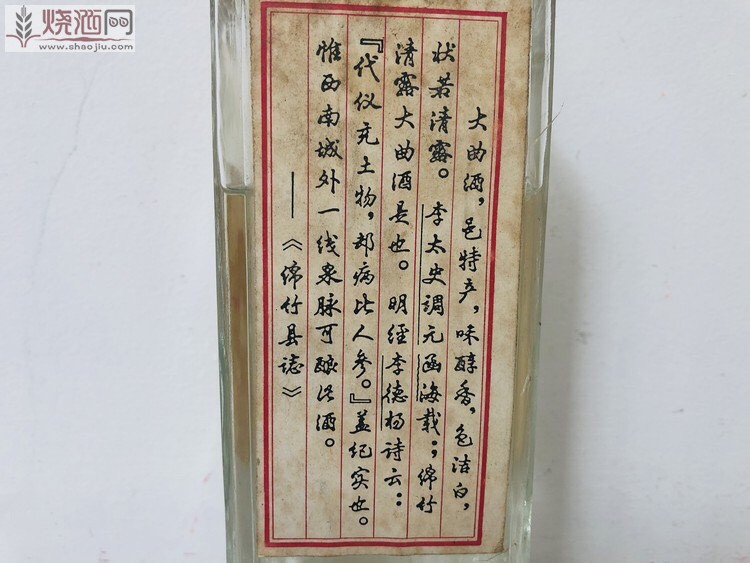 烧酒网
www.shaojiu.com
大曲酒，邑特产，味醇香，色洁白，
状若清露。李太史調元函海载；绵竹
清露大曲酒是也。明经李德扬诗云：
『代仪充土物，却病比人参。』盖纪实也。
惟西南城外一线泉脉可酿此酒。
——《绵竹县志》